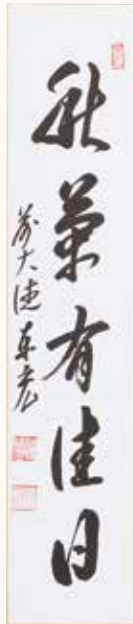 秋菊有佳日
前大徳